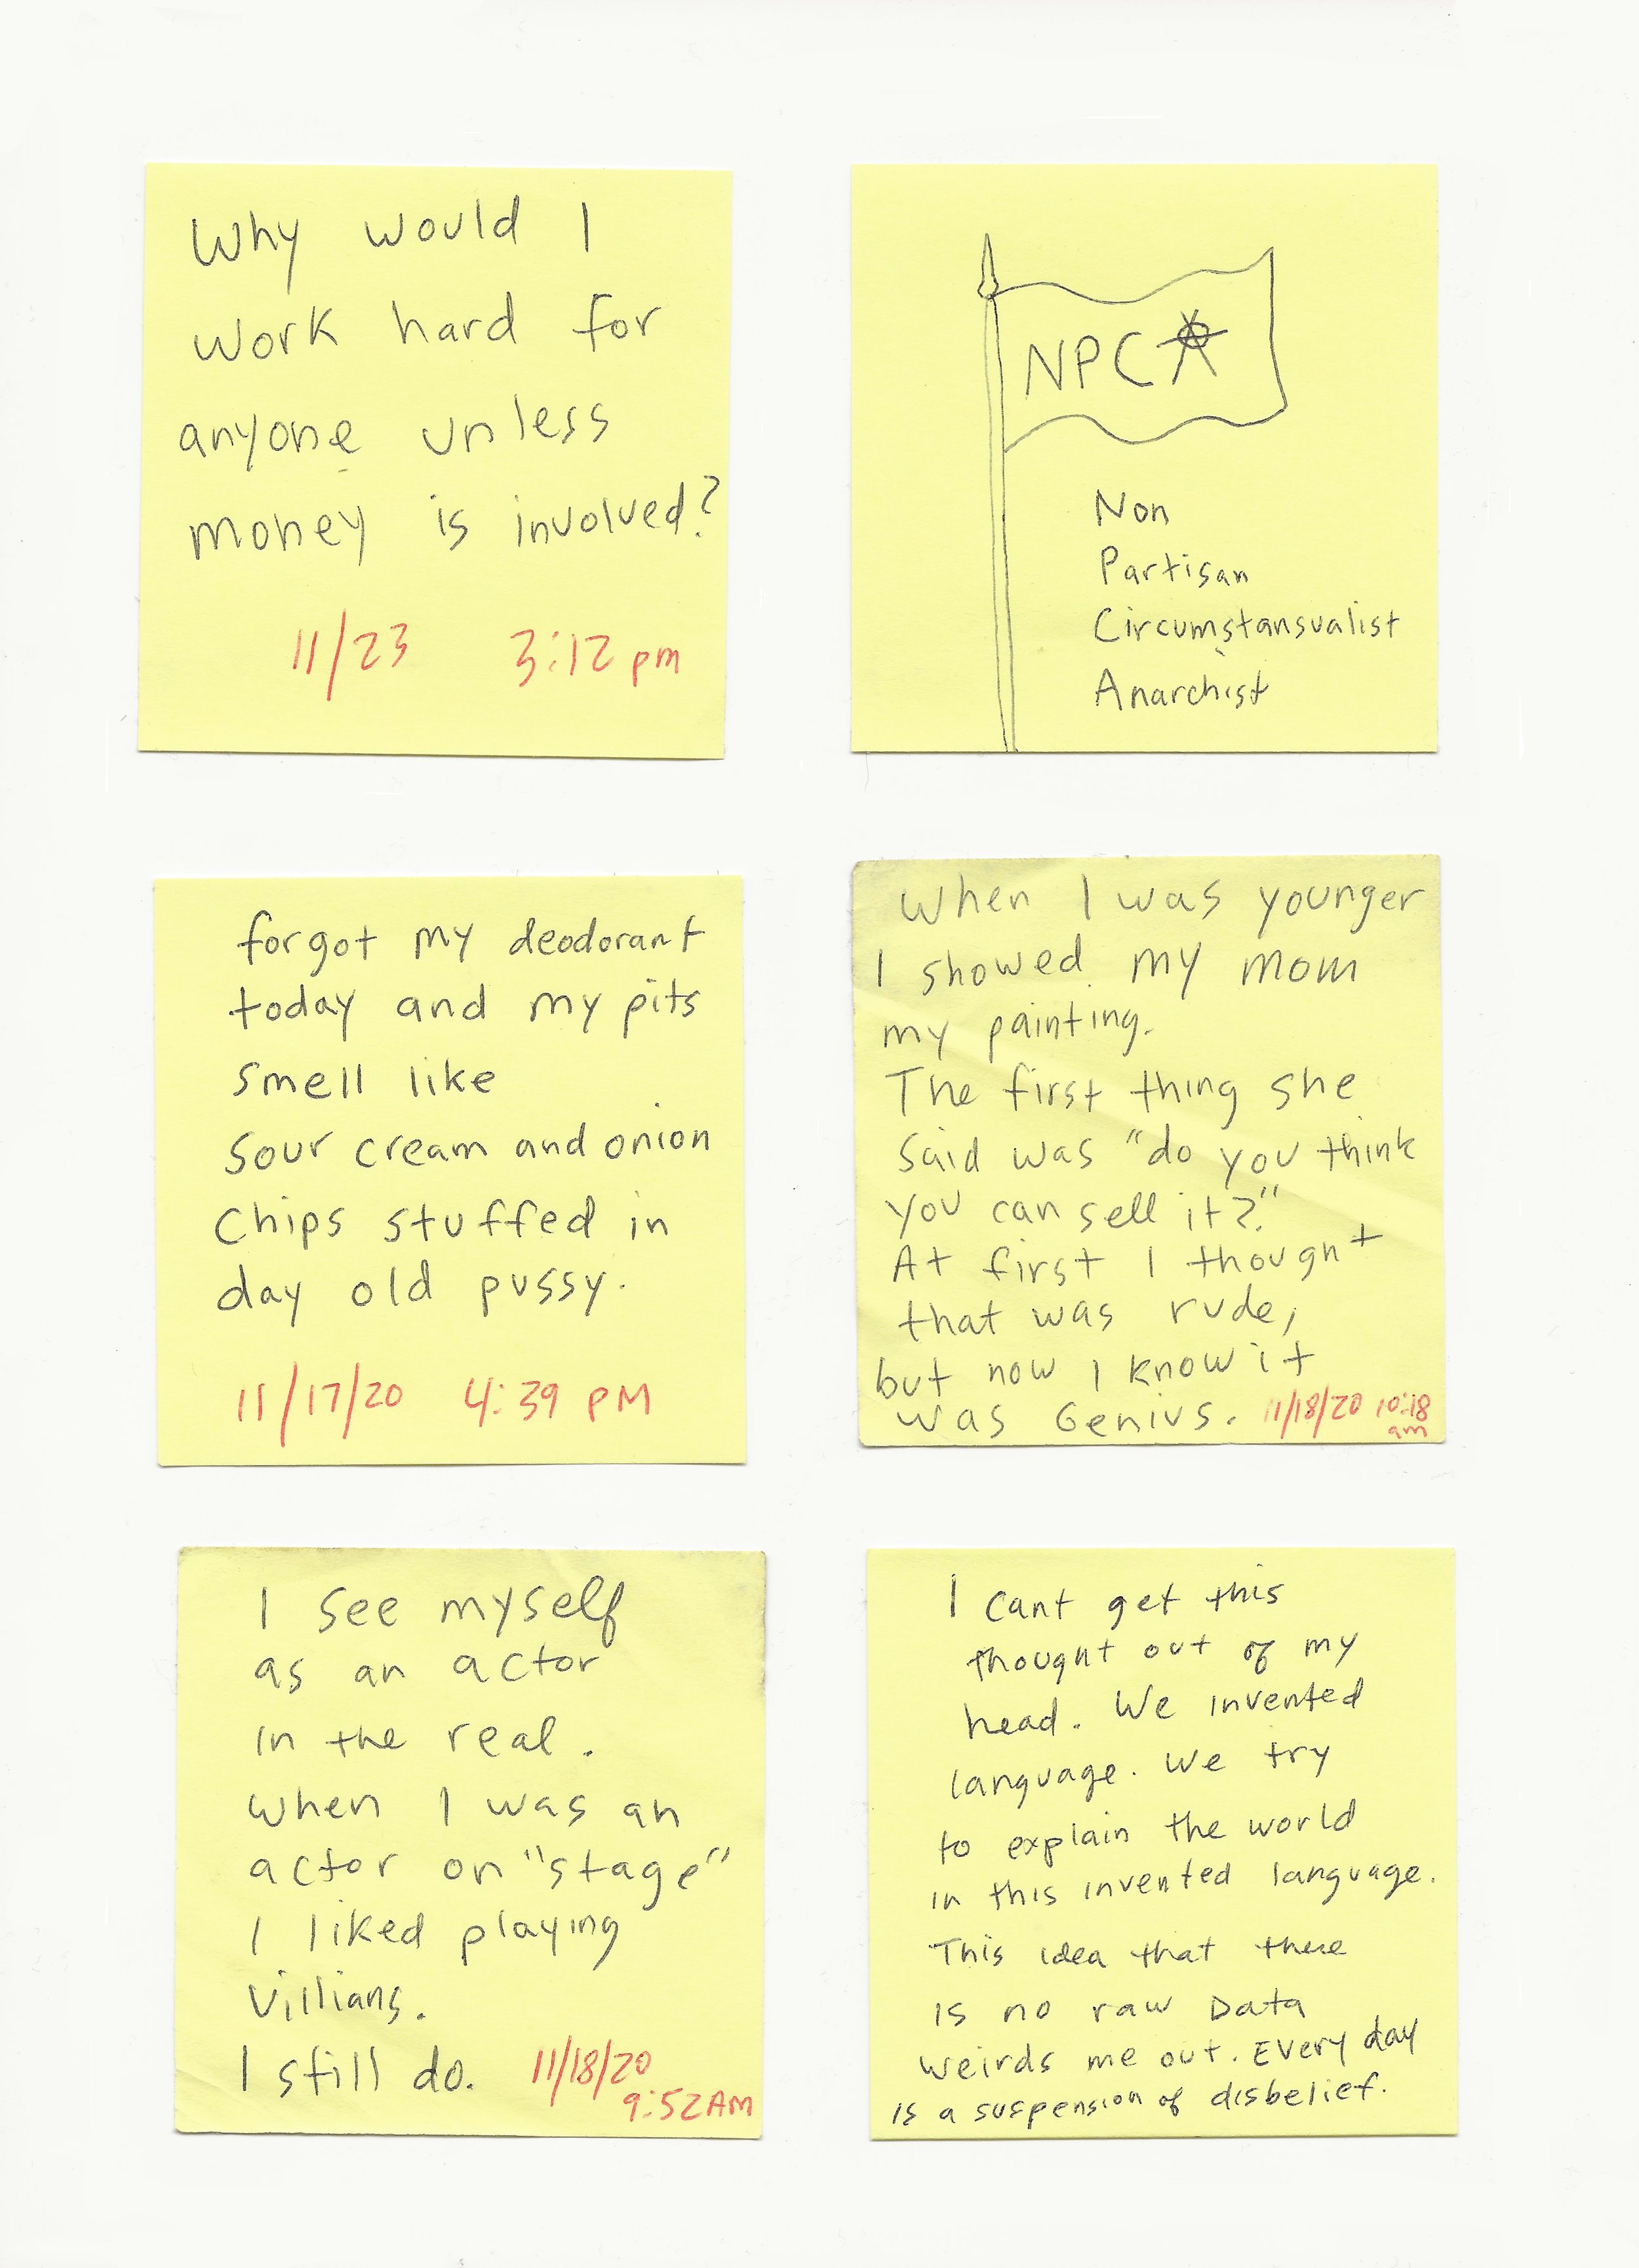 Why would I
work hard for
anyone unless
money is involved?
11/23 3:12 pm
NPCA
Non
Partisan
Circumstansualist
Anarchist
forgot my deodorant
today and my pits
smell like
sour cream and onion
chips stuffed in
day old pussy.
11/17/20 4:39 PM
When I was younger
I showed my mom
my painting.
The first thing she
said was "do you think
you can sell it?"
At first I thought
that was rude,
but now I know it
was Genius. 11/18/20 10:18
am
I see myself
as an actor
in the real.
when I was an
actor on "stage"
I liked playing
Villians.
I still do. 11/18/20
9:52AM
I cant get this
thought out of my
head. We invented
language. We try
to explain the world
in this invented language.
This idea that there
is no raw Data
weirds me out. Every day
is a suspension of disbelief.